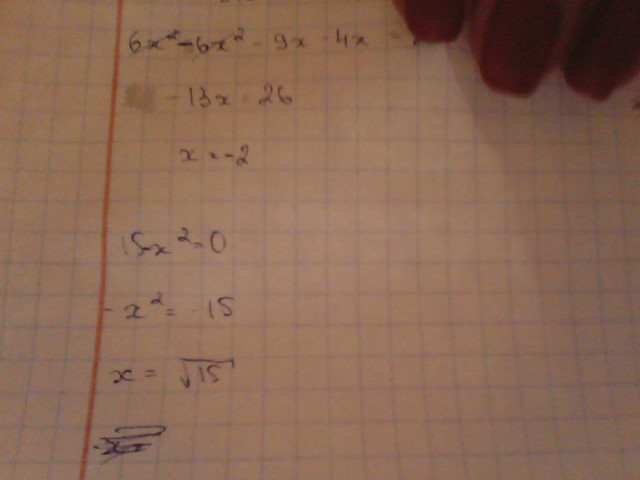 6x² - 6x² - 9x - 4x =
-13x = 26
x = -2
15-x² = 0
-x² = -15
x = √15